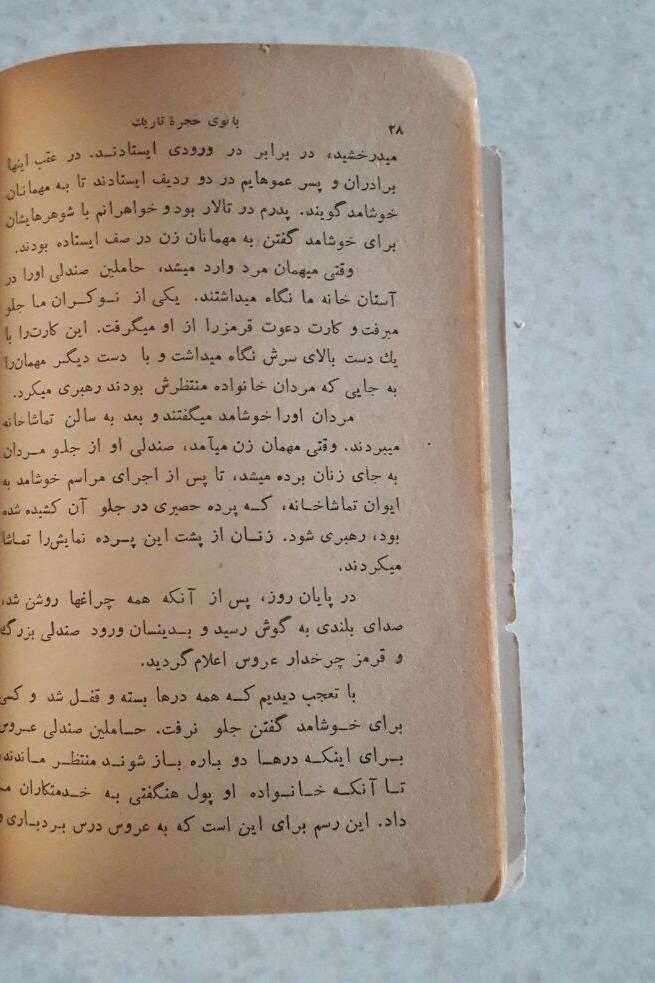 ۲۸
بانوی حجرهٔ تاریک
میدرخشید، در برابر در ورودی ایستادند. در عقب اینها
برادران و پسر عموهایم در دو ردیف ایستادند تا به مهمانان
خوشامد گویند. پدرم در تالار بود و خواهرانم با شوهرهایشان
برای خوشامد گفتن به مهمانان زن در صف ایستاده بودند.
وقتی میهمان مرد وارد میشد، حاملین صندلی اورا در
آستان خانه ما نگاه میداشتند. یکی از نوکران ما جلو
میرفت و کارت دعوت قرمزرا از او میگرفت. این کارت‌را با
یك دست بالای سرش نگاه میداشت و با دست دیگر مهمان‌را
به جایی که مردان خانواده منتظرش بودند رهبری میکرد.
مردان اورا خوشامد میگفتند و بعد به سالن تماشاخانه
میبردند. وقتی مهمان زن میآمد، صندلی او از جلو مردان
به جای زنان برده میشد، تا پس از اجرای مراسم خوشامد به
ایوان تماشاخانه، که پرده حصیری در جلو آن کشیده شده
بود، رهبری شود. زنان از پشت این پرده نمایش‌را تماشا
میکردند.
در پایان روز، پس از آنکه همه چراغها روشن شد،
صدای بلندی به گوش رسید و بدینسان ورود صندلی بزرگ
و قرمز چرخدار عروس اعلام گردید.
با تعجب دیدیم که همه درها بسته و قفل شد و کسی
برای خوشامد گفتن جلو نرفت. حاملین صندلی عروس
برای اینکه درها دو باره باز شوند منتظر ماندند،
تا آنکه خانواده او پول هنگفتی به خدمتکاران
داد. این رسم برای این است که به عروس درس بردباری و